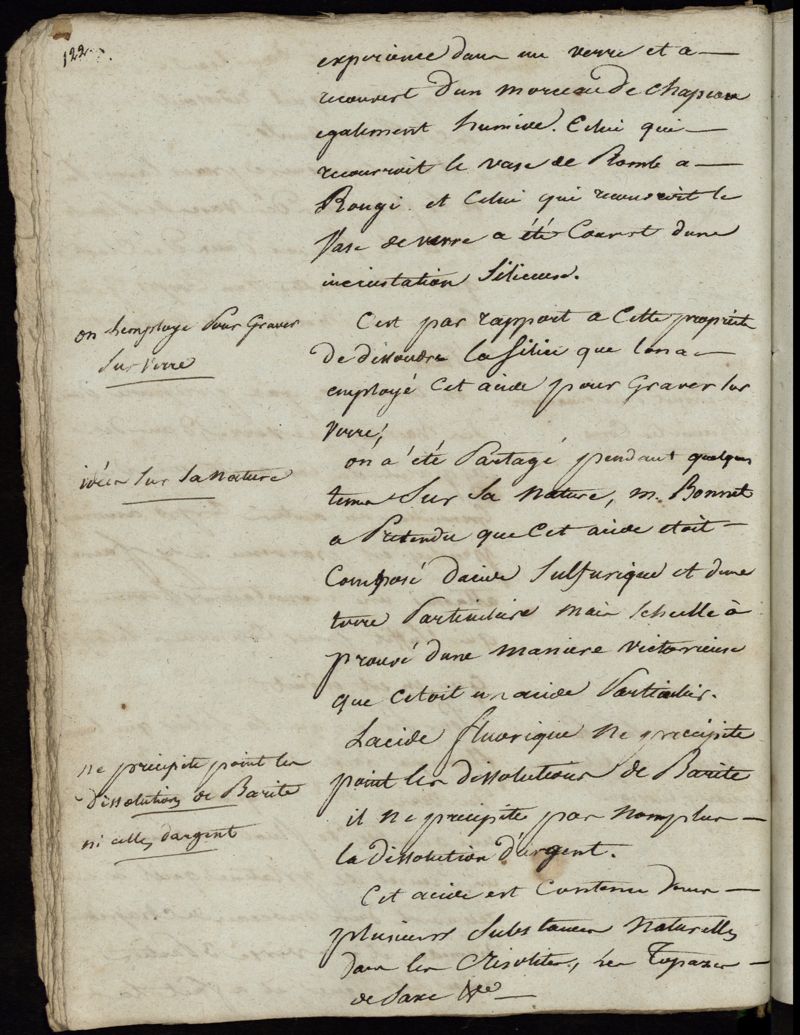 122.
experience dans un verre et a
recouvert d'un morceau de chapeau
egalement humide. Celui qui
recouvroit le vase de Plomb a
Rougi et Celui qui recouvroit le
Vase de verre a été Couvert dune
incrustation Silicieuse.
on lemploye Pour Graver
Sur Verre
C'est par rapport a Cette propriété
De dissoudre la Silice que lon a
employé Cet acide pour Graver Sur
Verre;
idées Sur Sa Nature
on a été Partagé pendant quelque
tems Sur Sa Nature, m. Bonnet
a Pretendu que Cet acide etoit
Composé dacide Sulfurique et dune
terre Particuliere mais Schelle à
prouvé dune maniere Victorieuse
que Cetoit un acide Particulier.
ne precipite point les
Dissolutions de Barite
ni celles dargent
Lacide fluorique Ne precipite
point les dissolutions de Barite
il ne precipite pas Nomplus
la dissolution d'argent.
Cet acide est Contenu dans
plusieurs Substances Naturelles
dans les Crisolites, les Topazes
de Saxe &c